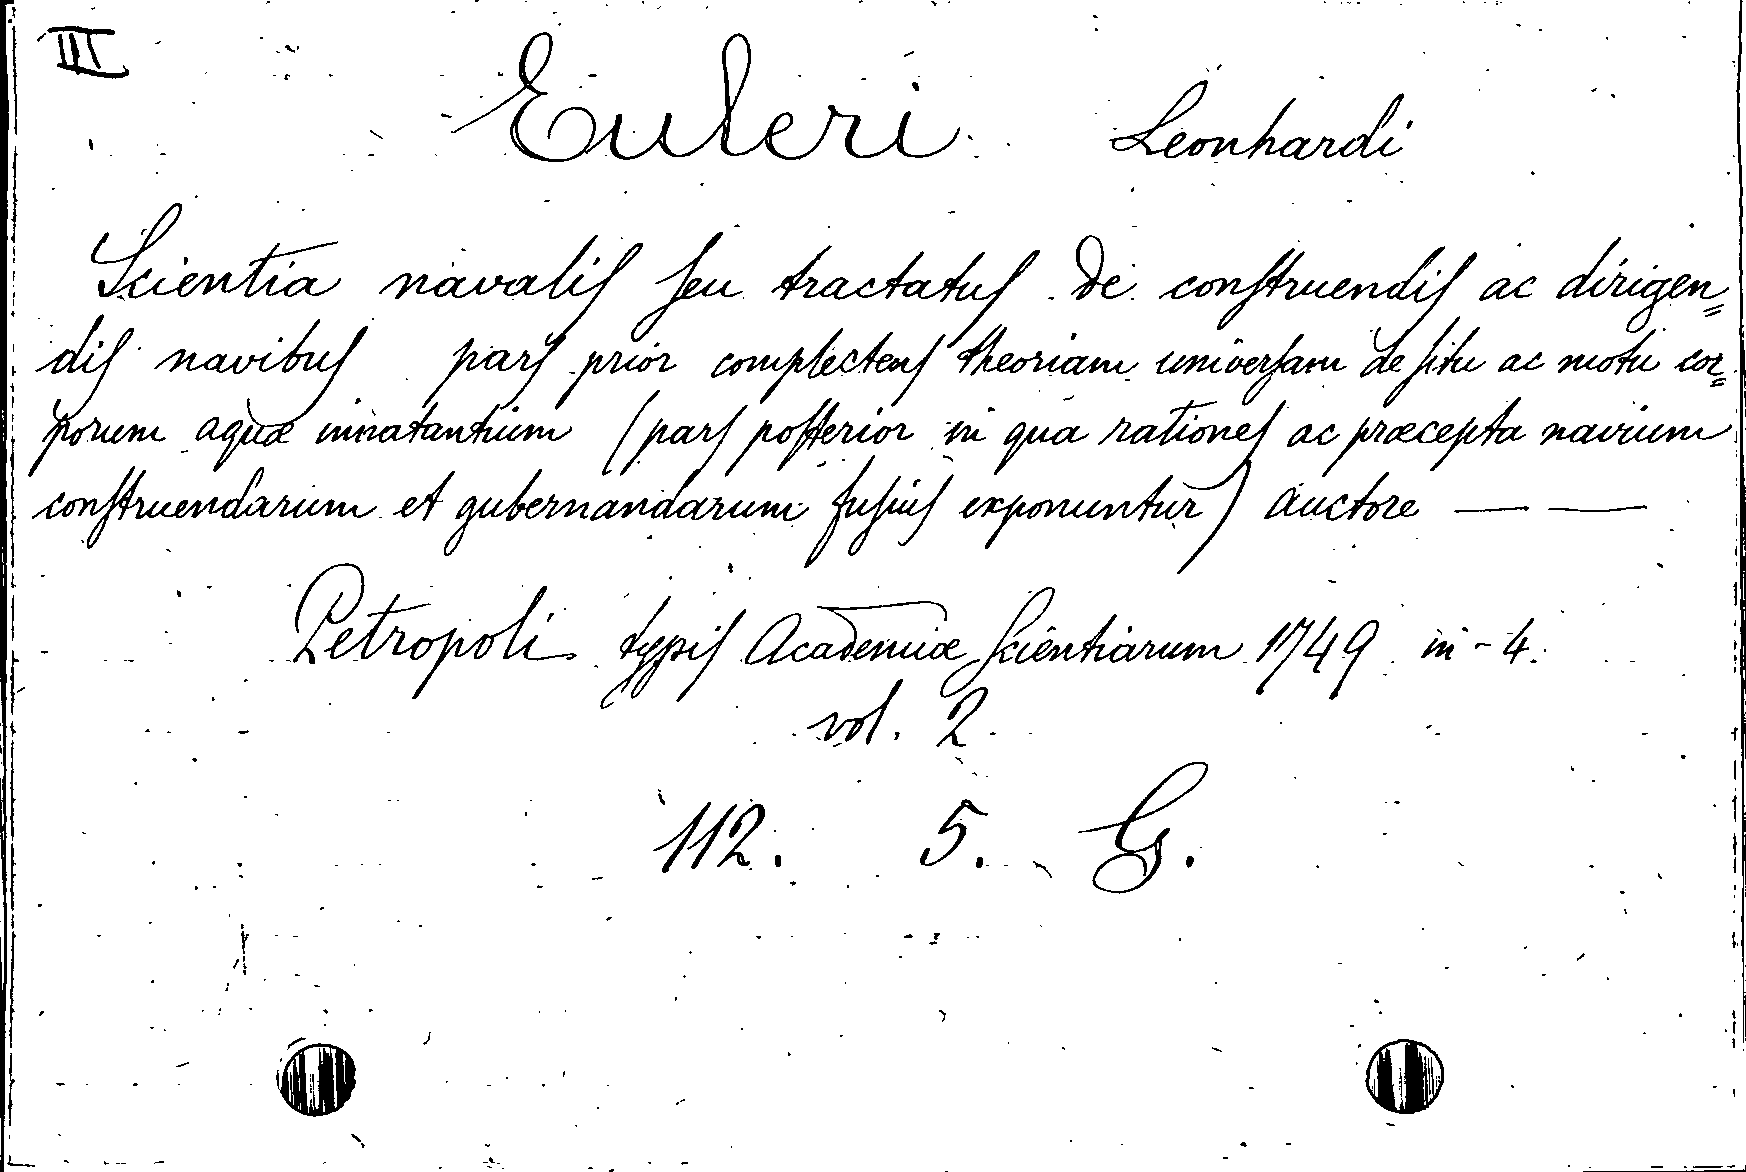 III
Euleri Leonhardi
Scientia navalis seu tractatus de construendis ac dirigen=
dis navibus pars prior complectens theoriam universam de situ ac motu cor=
porum aquæ innatantium (pars posterior in qua rationes ac præcepta navium
construendarum et gubernandarum fusius exponuntur) auctore — —
Petropoli typis Academiæ Scientiarum 1749 in-4.
vol. 2.
112. 5. G.